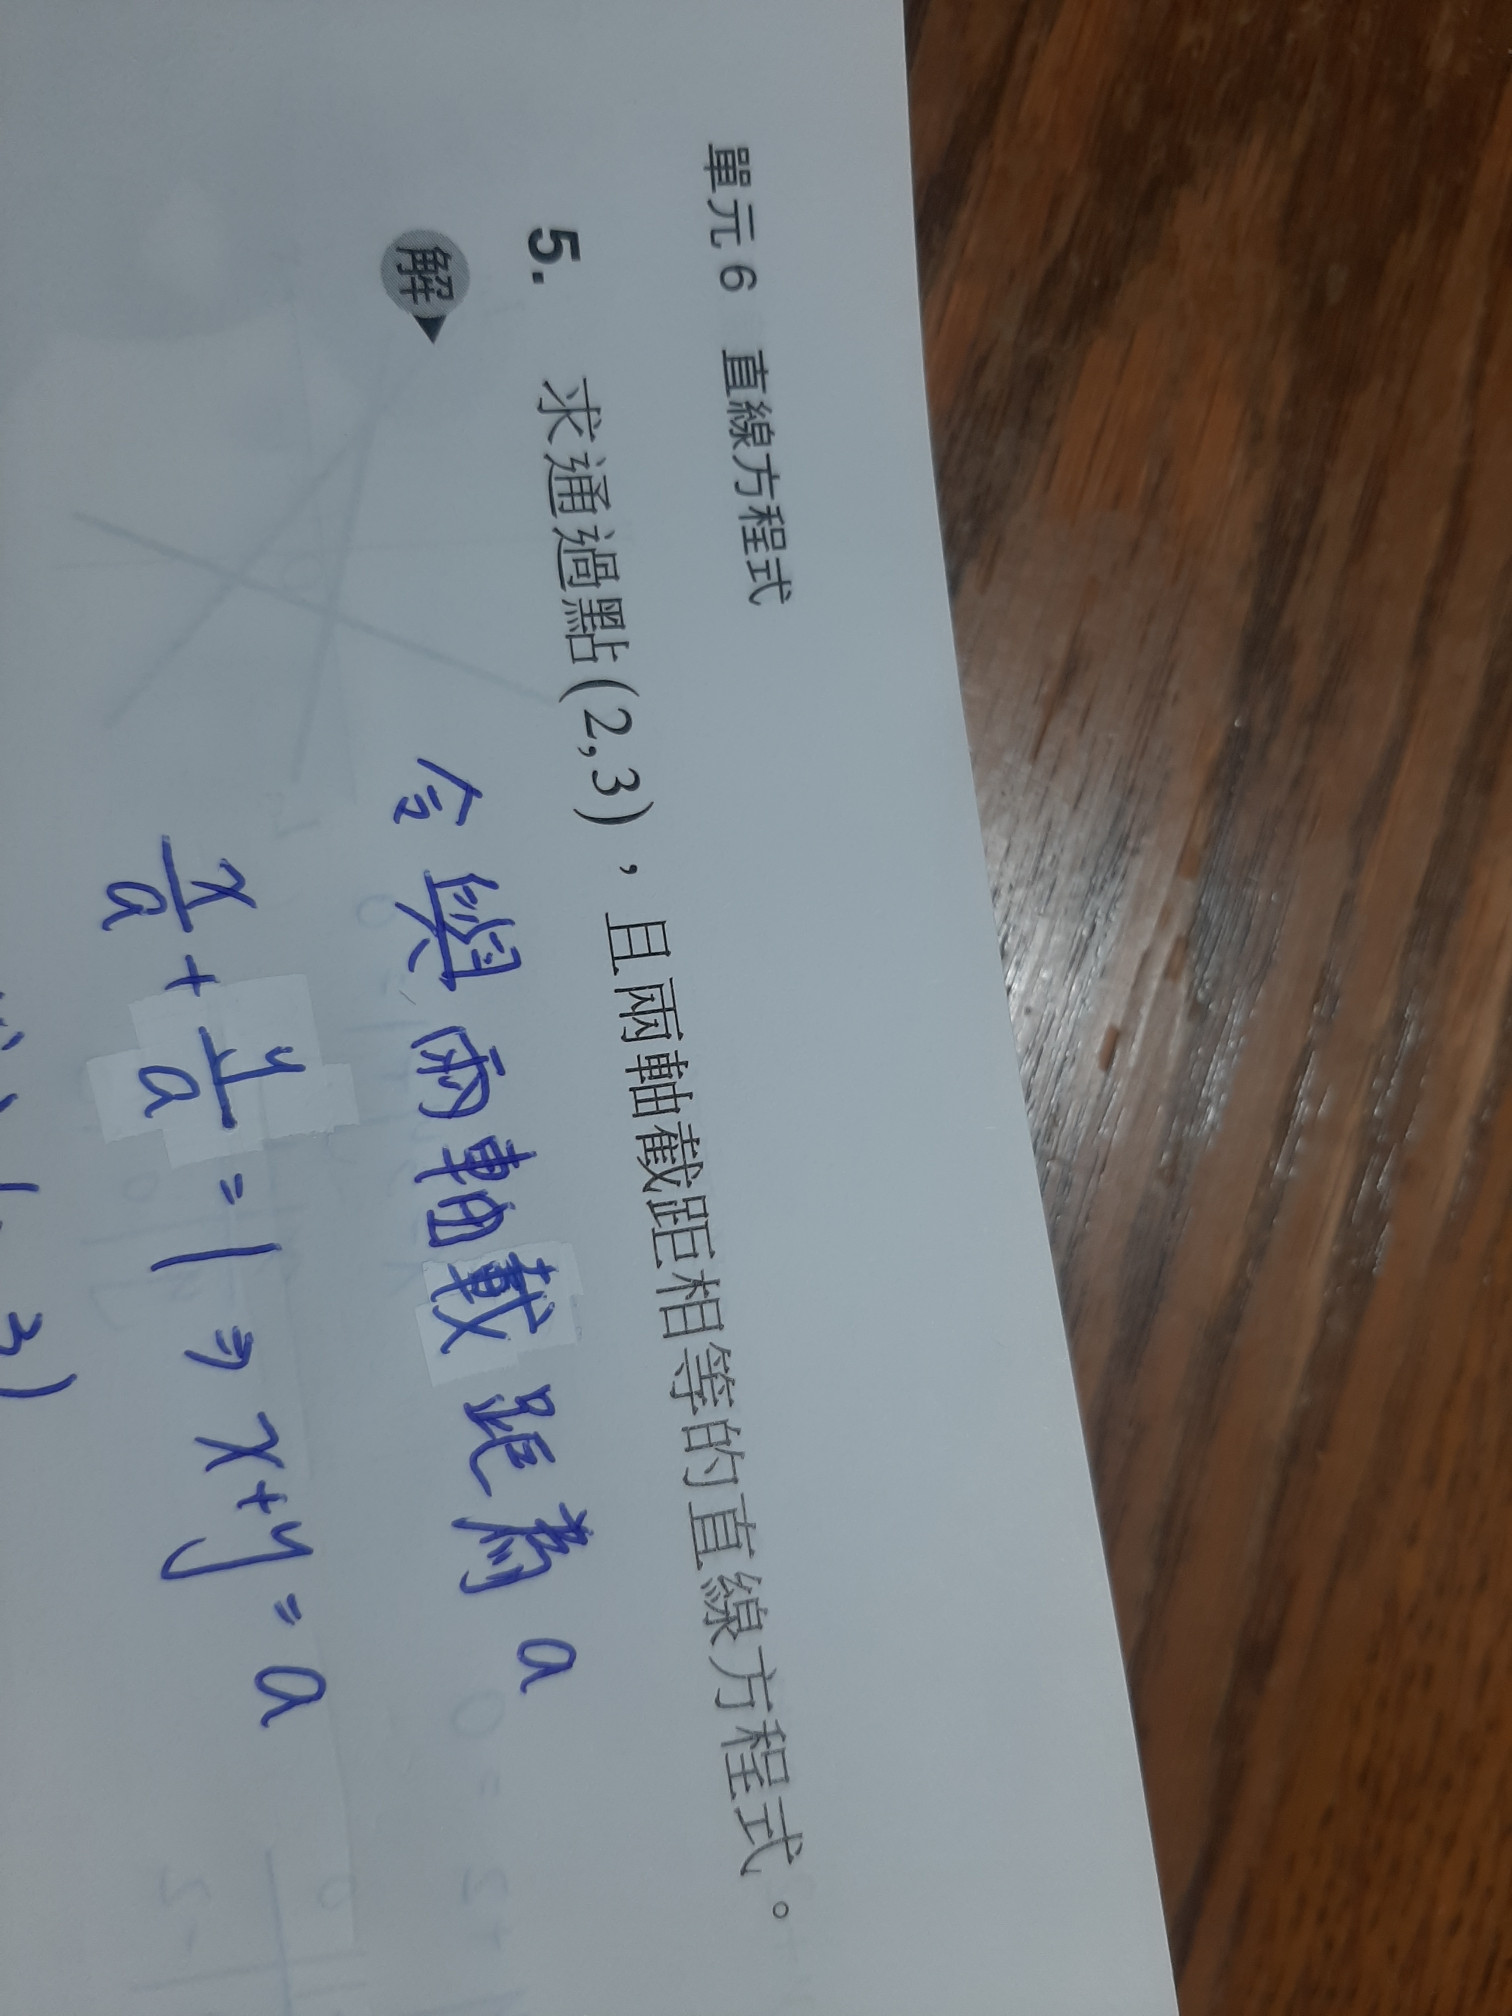 單元 6 直線方程式
5. 求通過點(2,3),且兩軸截距相等的直線方程式。
解
令與兩軸截距為 a
x/a + y/a = 1 ⇒ x+y = a
3)